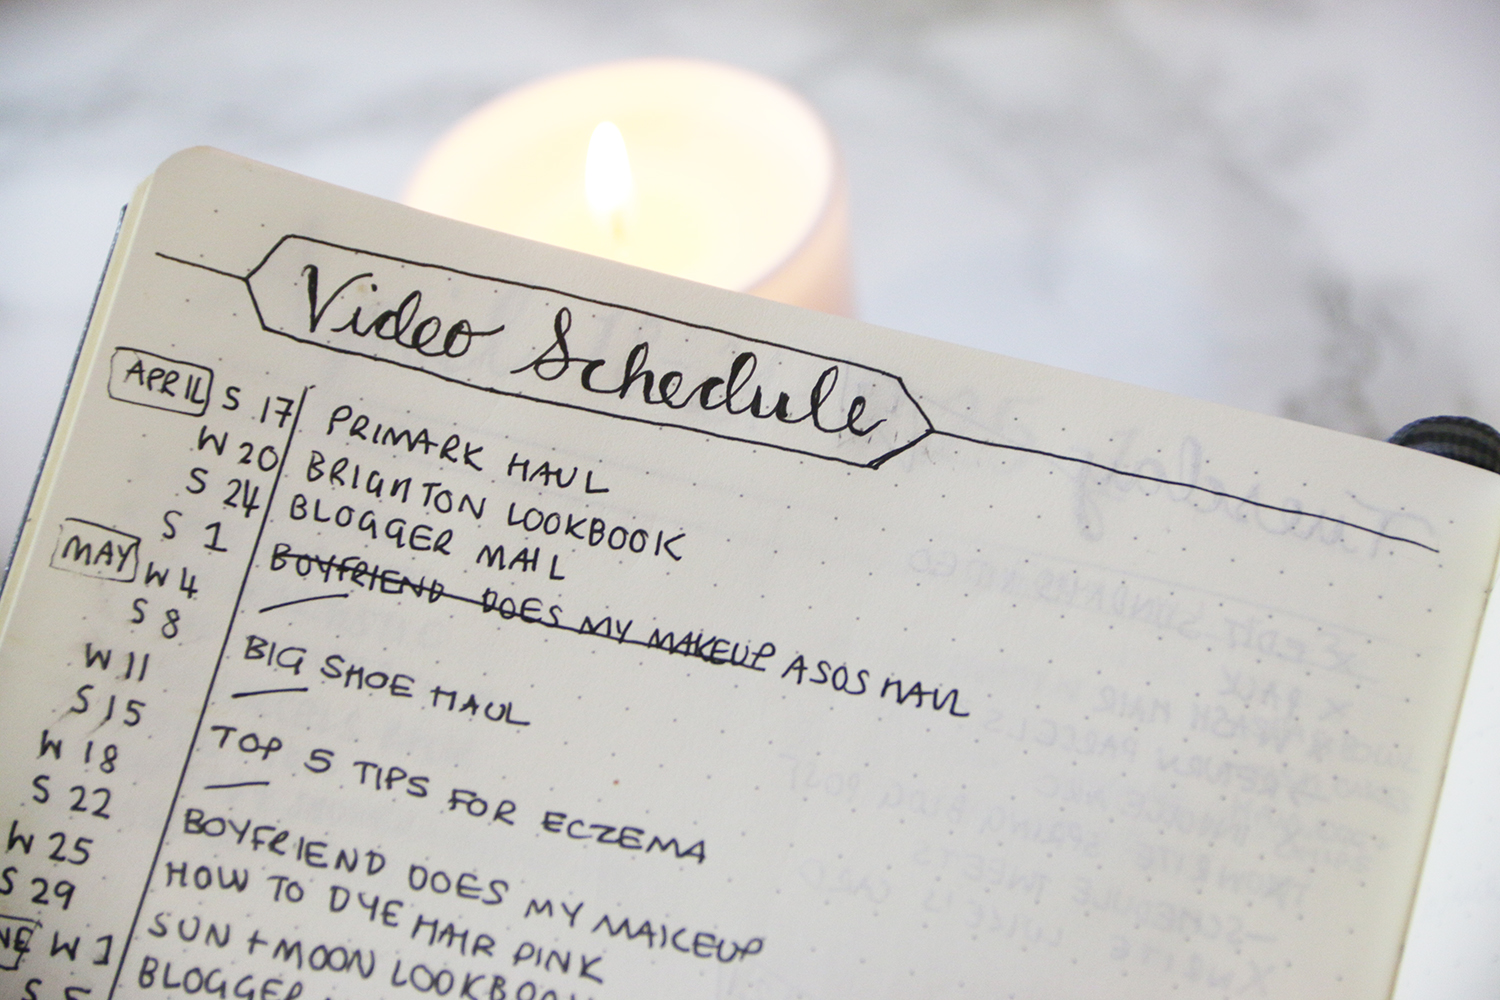 Video Schedule
APRIL S 17 PRIMARK HAUL
W 20 BRIGHTON LOOKBOOK
S 24 BLOGGER MAIL
S 1 BOYFRIEND DOES MY MAKEUP ASOS HAUL
MAY W 4 —
S 8 BIG SHOE HAUL
W 11 —
S 15 TOP 5 TIPS FOR ECZEMA
W 18 —
S 22 BOYFRIEND DOES MY MAKEUP
W 25 HOW TO DYE HAIR PINK
S 29 SUN + MOON LOOKBOO
NE W 1 BLOGGER
S 5